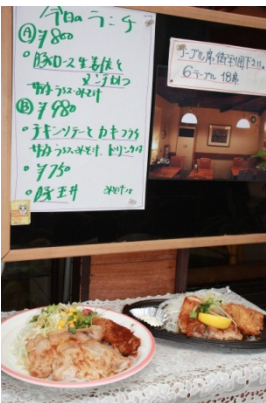 今日のランチ
Ⓐ ￥800
豚ロース生姜焼と
メンチカツ
サラダ ライス みそ汁
Ⓑ ￥980
チキンソテーとカキフライ
サラダ ライス みそ汁 ドリンク付
￥750
豚丼 みそ汁付
テーブル席
6テーブル 18席